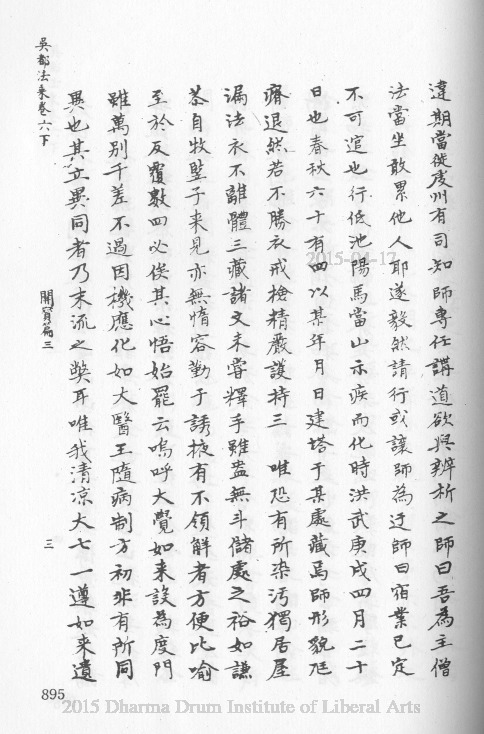 違期當徙虔州有司知師專任講道欲與辨析之師曰吾為主僧
法當坐敢累他人耶遂毅然請行或讓師為迂師曰宿業已定
不可逭也行低池陽馬當山示疾而化時洪武庚戌四月二十
日也春秋六十有四以某年月日建塔于某處藏焉師形貌尫
瘠退然若不勝衣戒檢精嚴護持三 唯恐有所染汚獨居屋
漏法衣不離體三藏諸文未嘗釋手雖盎無斗儲處之裕如謙
恭自牧豎子来見亦無惰容勤于誘掖有不領解者方便比喻
至於反覆數四必俟其心悟始罷云嗚呼大覺如来設為度門
雖萬別千差不過因機應化如大醫王隨病制方初非有所同
異也其立異同者乃末流之弊耳唯我清凉大七一遵如来遺
吳都法乘卷六下
開宵篇三
三
895
2015-04-17
2015 Dharma Drum Institute of Liberal Arts